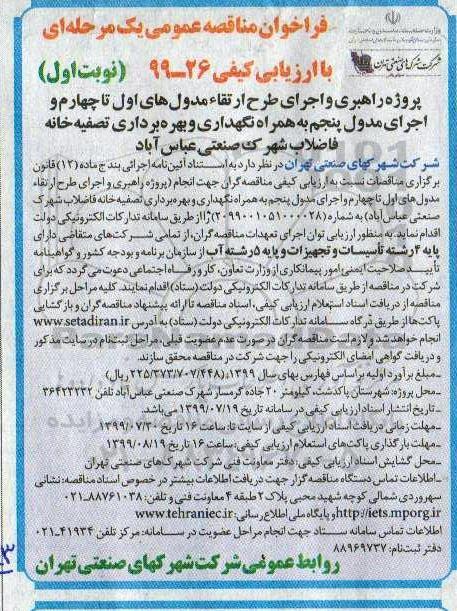 فراخوان مناقصه عمومی یک مرحله‌ای
با ارزیابی کیفی ۲۶-۹۹ (نوبت اول)
شرکت شهرک‌های صنعتی تهران
پروژه راهبری و اجرای طرح ارتقاء مدول‌های اول تا چهارم و
اجرای مدول پنجم به همراه نگهداری و بهره‌برداری تصفیه‌خانه
فاضلاب شهرک صنعتی عباس آباد
شرکت شهرکهای صنعتی تهران در نظر دارد به استناد آئین‌نامه اجرائی بند ج ماده (۱۲) قانون
برگزاری مناقصات نسبت به ارزیابی کیفی مناقصه‌گران جهت انجام (پروژه راهبری و اجرای طرح ارتقاء
مدول‌های اول تا چهارم و اجرای مدول پنجم به همراه نگهداری و بهره‌برداری تصفیه‌خانه فاضلاب شهرک
صنعتی عباس آباد) به شماره (۲۰۹۹۰۰۱۰۵۱۰۰۰۰۲۸) را از طریق سامانه تدارکات الکترونیکی دولت
اقدام نماید. به منظور ارزیابی توان اجرای تعهدات مناقصه‌گران، از تمامی شرکت‌های متقاضی دارای
پایه ۴ رشته تأسیسات و تجهیزات و پایه ۵ رشته آب از سازمان برنامه و بودجه کشور و گواهینامه
تأیید صلاحیت ایمنی امور پیمانکاری از وزارت تعاون، کار و رفاه اجتماعی دعوت می‌گردد که برای
شرکت در مناقصه از طریق سامانه تدارکات الکترونیکی دولت (ستاد) اقدام نمایند. کلیه مراحل برگزاری
مناقصه از دریافت اسناد استعلام ارزیابی کیفی، اسناد مناقصه تا ارائه پیشنهاد مناقصه‌گران و بازگشایی
پاکت‌ها از طریق درگاه سامانه تدارکات الکترونیکی دولت (ستاد) به آدرس www.setadiran.ir
انجام خواهد شد و لازم است مناقصه‌گران در صورت عدم عضویت قبلی، مراحل ثبت‌نام در سایت مذکور
و دریافت گواهی امضای الکترونیکی را جهت شرکت در مناقصه محقق سازند.
ـ مبلغ برآورد اولیه براساس فهارس بهای سال ۱۳۹۹: (۲۲۵/۳۷۳/۷۰۷/۴۴۸ ریال)
ـ محل پروژه: شهرستان پاکدشت، کیلومتر ۲۰ جاده گرمسار شهرک صنعتی عباس آباد تلفن ۳۶۴۲۳۲۳۲
ـ تاریخ انتشار اسناد ارزیابی کیفی در سامانه تاریخ ۱۳۹۹/۰۷/۱۹ می‌باشد.
ـ مهلت زمانی دریافت اسناد ارزیابی کیفی از سایت تا: ساعت ۱۶ تاریخ ۱۳۹۹/۰۷/۳۰
ـ مهلت بارگذاری پاکت‌های استعلام ارزیابی کیفی: ساعت ۱۶ تاریخ ۱۳۹۹/۰۸/۱۹
ـ محل گشایش اسناد ارزیابی کیفی: دفتر معاونت فنی شرکت شهرک‌های صنعتی تهران
ـ اطلاعات تماس دستگاه مناقصه‌گزار جهت دریافت اطلاعات بیشتر در خصوص اسناد مناقصه: نشانی
سهروردی شمالی کوچه شهید محبی پلاک ۲ طبقه ۴ معاونت فنی و تلفن: ۸۸۷۶۱۰۳۸-۰۲۱
http://iets.mporg.ir و پایگاه ملی اطلاع‌رسانی: www.tehraniec.ir
اطلاعات تماس سامانه ستاد جهت انجام مراحل عضویت در سامانه: مرکز تلفن ۴۱۹۳۴-۰۲۱
دفتر ثبت‌نام: ۸۸۹۶۹۷۳۷
روابط عمومی شرکت شهرکهای صنعتی تهران